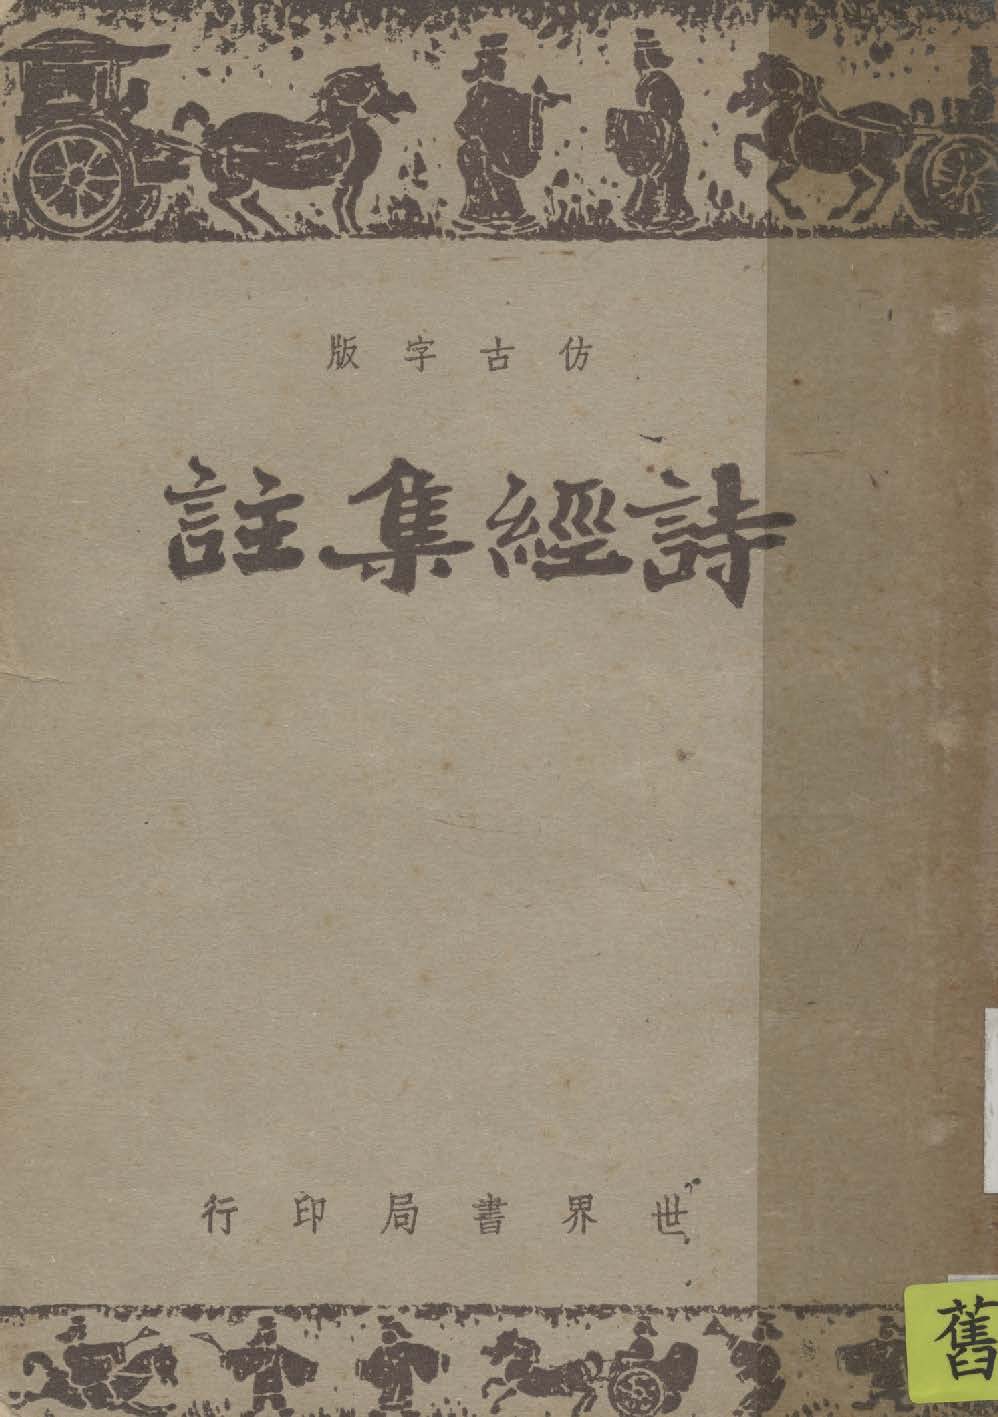 仿古字版
詩經集註
世界書局印行
舊